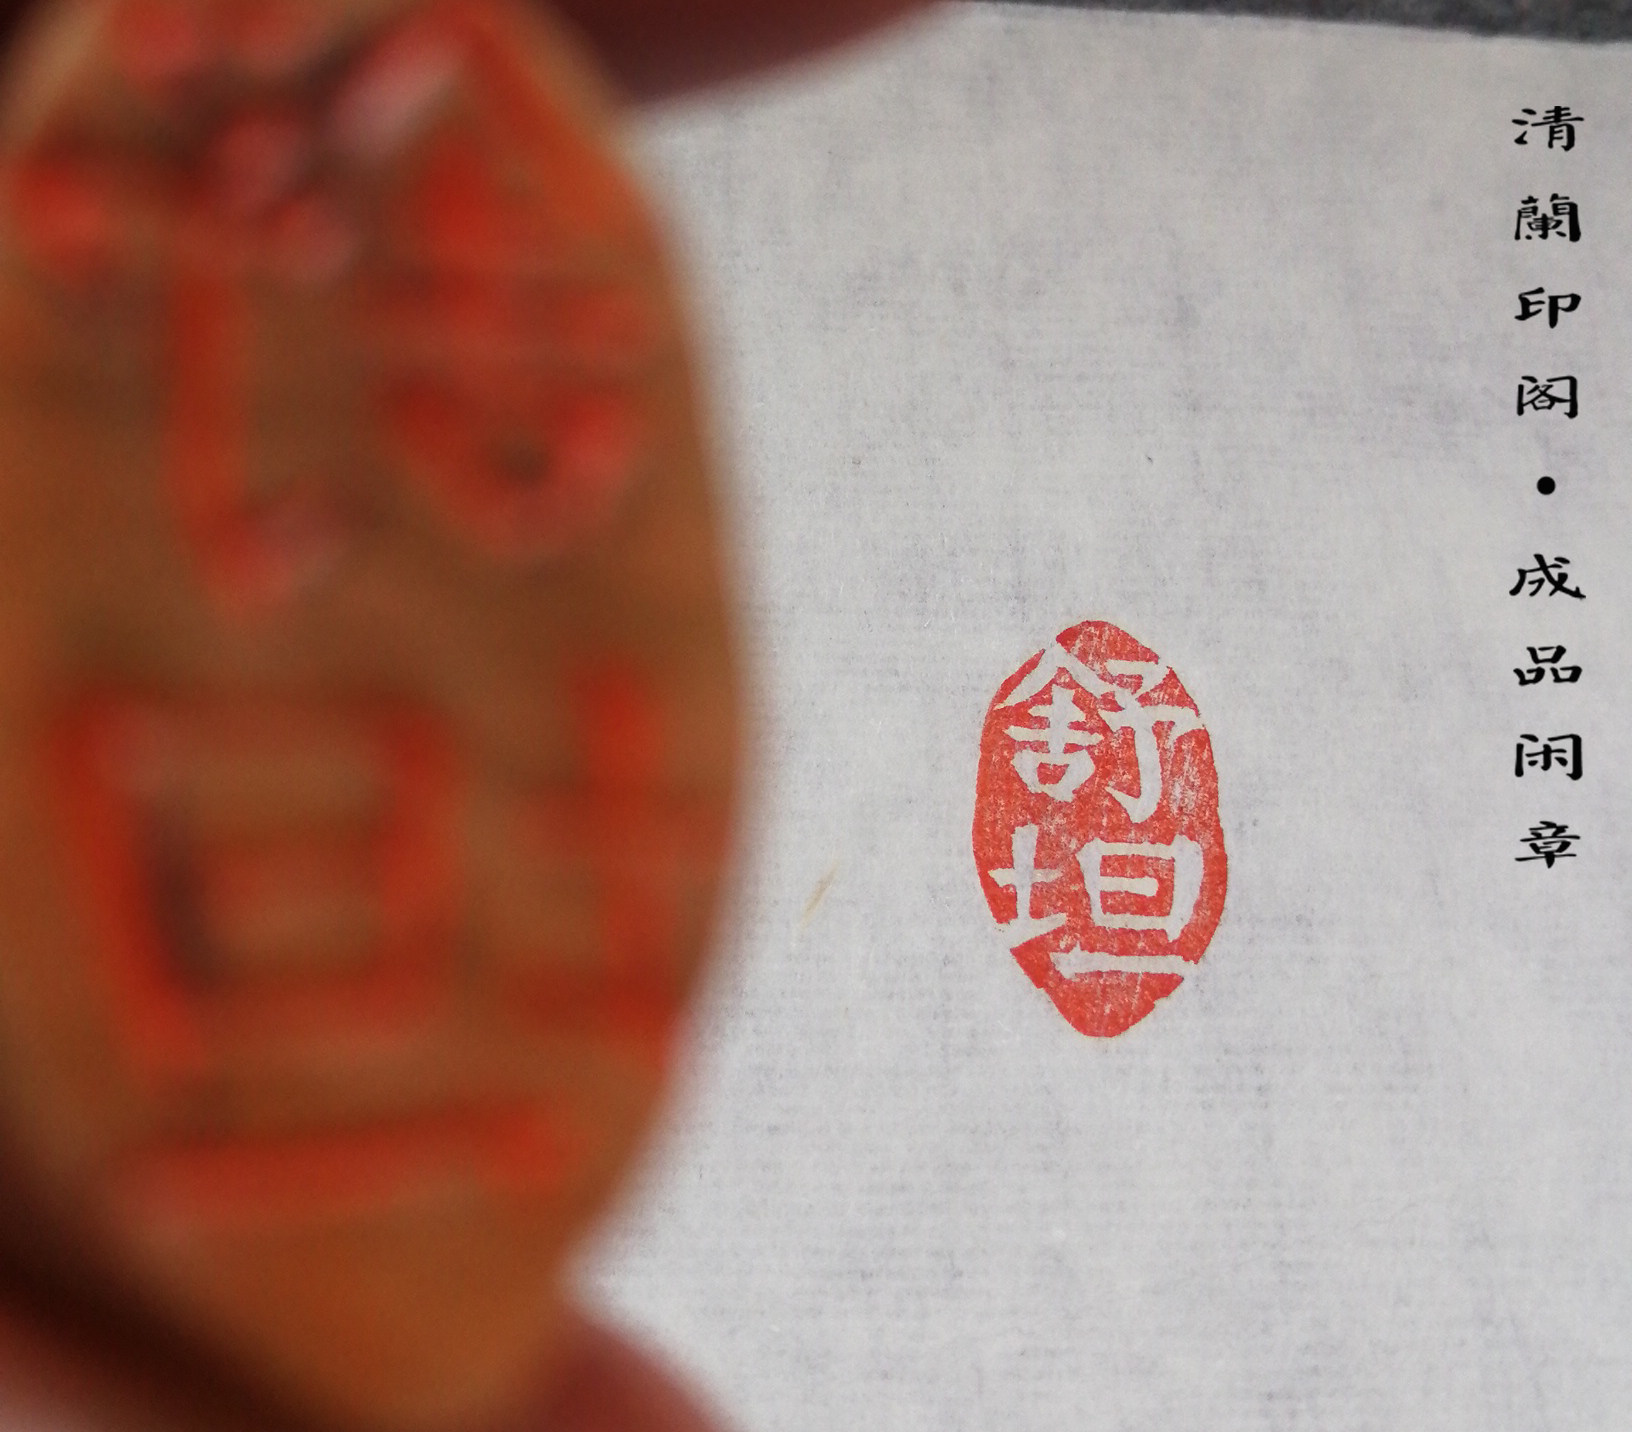 清蘭印阁·成品闲章
舒
坦